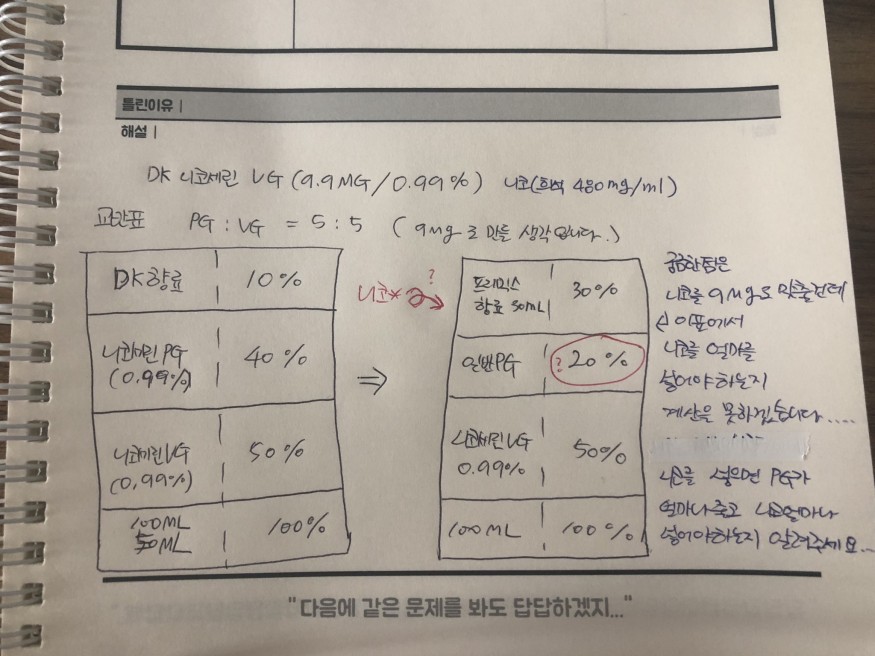 틀린이유 |
해설 |
DK 니코세린 VG (9.9MG/0.99%) 니코(희석 480mg/ml)
교반표 PG : VG = 5 : 5 ( 9mg로 만들 생각입니다.)
DK향료 10%
니코세린 PG 40%
(0.99%)
니코세린 VG 50%
(0.99%)
100ML 100%
50ML
?
니코*
⇒
프리믹스 30%
향료 30mL
일반PG ? 20%
니코세린 VG 50%
0.99%
100ML 100%
궁금한점은
니코를 9mg로 맞출건데
이표에서
니코를 얼마를
넣어야하는지
계산을 못하겠습니다....
니코를 넣으면 PG가
얼마나 줄고 니코얼마나
넣어야하는지 알려주세요...
"다음에 같은 문제를 봐도 답답하겠지..."